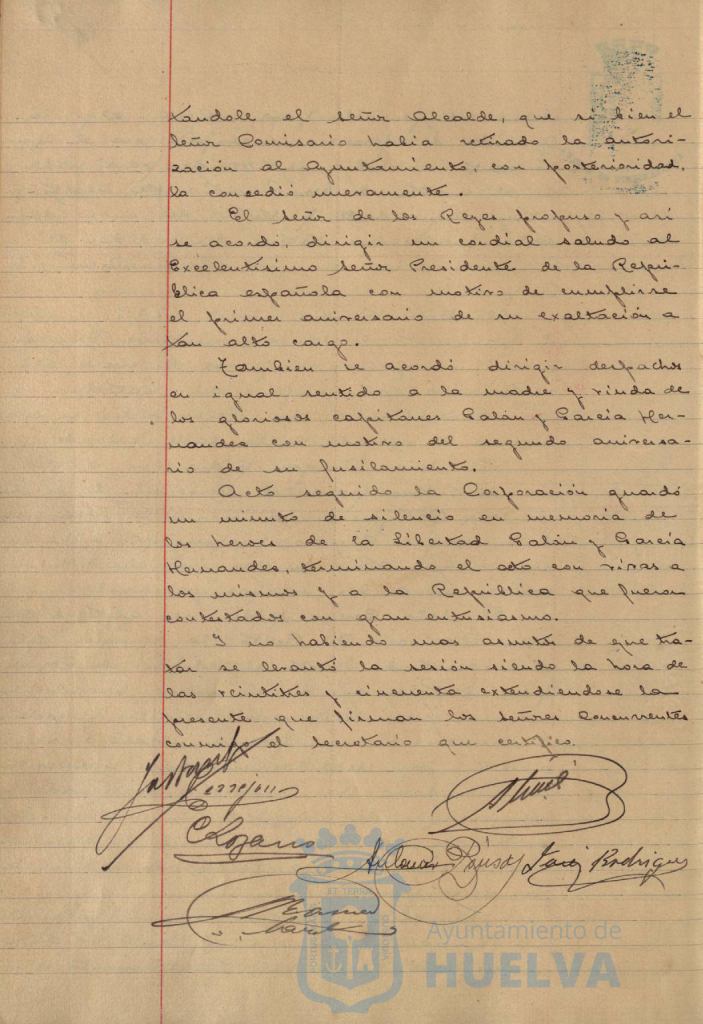 tandole el señor Alcalde, que si bien el
señor Comisario habia retirado la autori-
zación al Ayuntamiento, con posterioridad,
la concedió nuevamente.
El señor de los Reyes propuso y asi
se acordó, dirigir un cordial saludo al
Excelentisimo señor Presidente de la Repú-
blica española con motivo de cumplirse
el primer aniversario de su exaltación a
tan alto cargo.
Tambien se acordó dirigir despachos
en igual sentido a la madre y viuda de
los gloriosos capitanes Galán y García Her-
nandez con motivo del segundo aniversa-
rio de su fusilamiento.
Acto seguido la Corporación guardó
un minuto de silencio en memoria de
los heroes de la Libertad Galán y García
Hernandez, terminando el acto con vivas a
los mismos y a la República que fueron
contestados con gran entusiasmo.
Y no habiendo mas asuntos de que tra-
tar se levantó la sesión siendo la hora de
las veintitres y cincuenta extendiendose la
presente que firman los señores concurrentes
conmigo el secretario que certifico.
Terrejon
C Lozano
Rodriguez
Ayuntamiento de
HUELVA